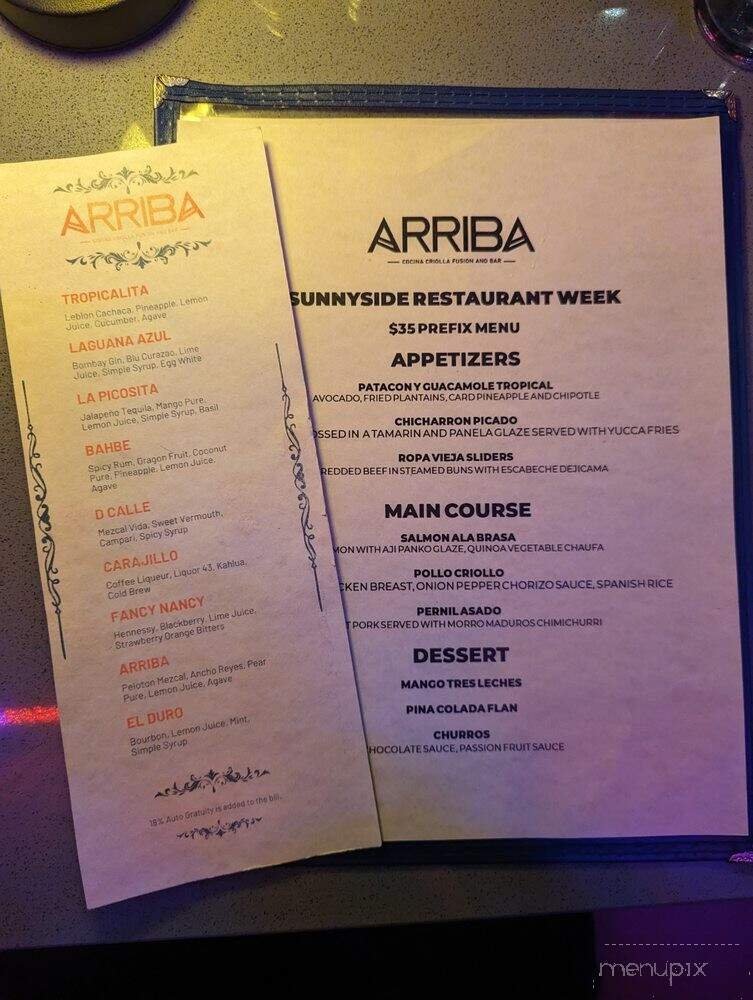 ARRIBA
COCINA CRIOLLA FUSION AND BAR
TROPICALITA
Leblon Cachaca, Pineapple, Lemon
Juice, Cucumber, Agave
LAGUANA AZUL
Bombay Gin, Blu Curazao, Lime
Juice, Simple Syrup, Egg White
LA PICOSITA
Jalapeño Tequila, Mango Pure,
Lemon Juice, Simple Syrup, Basil
BAHBE
Spicy Rum, Dragon Fruit, Coconut
Pure, Pineapple, Lemon Juice,
Agave
D CALLE
Mezcal Vida, Sweet Vermouth,
Campari, Spicy Syrup
CARAJILLO
Coffee Liqueur, Liquor 43, Kahlua,
Cold Brew
FANCY NANCY
Hennessy, Blackberry, Lime Juice,
Strawberry Orange Bitters
ARRIBA
Peloton Mezcal, Ancho Reyes, Pear
Pure, Lemon Juice, Agave
EL DURO
Bourbon, Lemon Juice, Mint,
Simple Syrup
18% Auto Gratuity is added to the bill.
ARRIBA
COCINA CRIOLLA FUSION AND BAR
SUNNYSIDE RESTAURANT WEEK
$35 PREFIX MENU
APPETIZERS
PATACON Y GUACAMOLE TROPICAL
AVOCADO, FRIED PLANTAINS, CARD PINEAPPLE AND CHIPOTLE
CHICHARRON PICADO
OSSED IN A TAMARIN AND PANELA GLAZE SERVED WITH YUCCA FRIES
ROPA VIEJA SLIDERS
REDDED BEEF IN STEAMED BUNS WITH ESCABECHE DEJICAMA
MAIN COURSE
SALMON ALA BRASA
MON WITH AJI PANKO GLAZE, QUINOA VEGETABLE CHAUFA
POLLO CRIOLLO
CKEN BREAST, ONION PEPPER CHORIZO SAUCE, SPANISH RICE
PERNIL ASADO
T PORK SERVED WITH MORRO MADUROS CHIMICHURRI
DESSERT
MANGO TRES LECHES
PINA COLADA FLAN
CHURROS
HOCOLATE SAUCE, PASSION FRUIT SAUCE
menupix